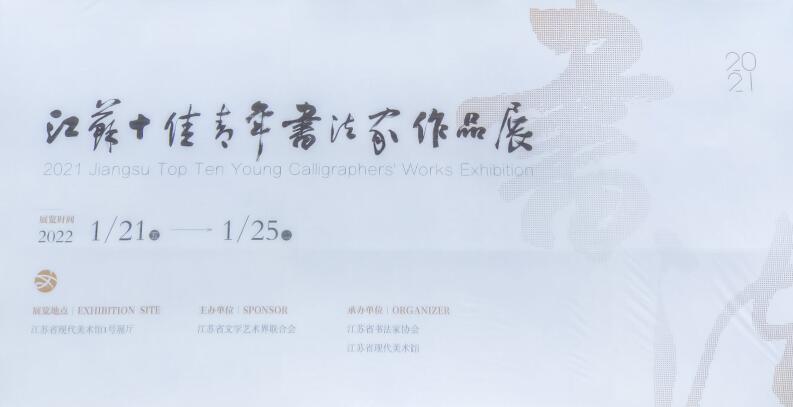 書法
20
21
江蘇十佳青年書法家作品展
2021 Jiangsu Top Ten Young Calligraphers' Works Exhibition
展览时间
2022 1/21五 — 1/25二
展览地点 | EXHIBITION SITE
江苏省现代美术馆1号展厅
主办单位 | SPONSOR
江苏省文学艺术界联合会
承办单位 | ORGANIZER
江苏省书法家协会
江苏省现代美术馆